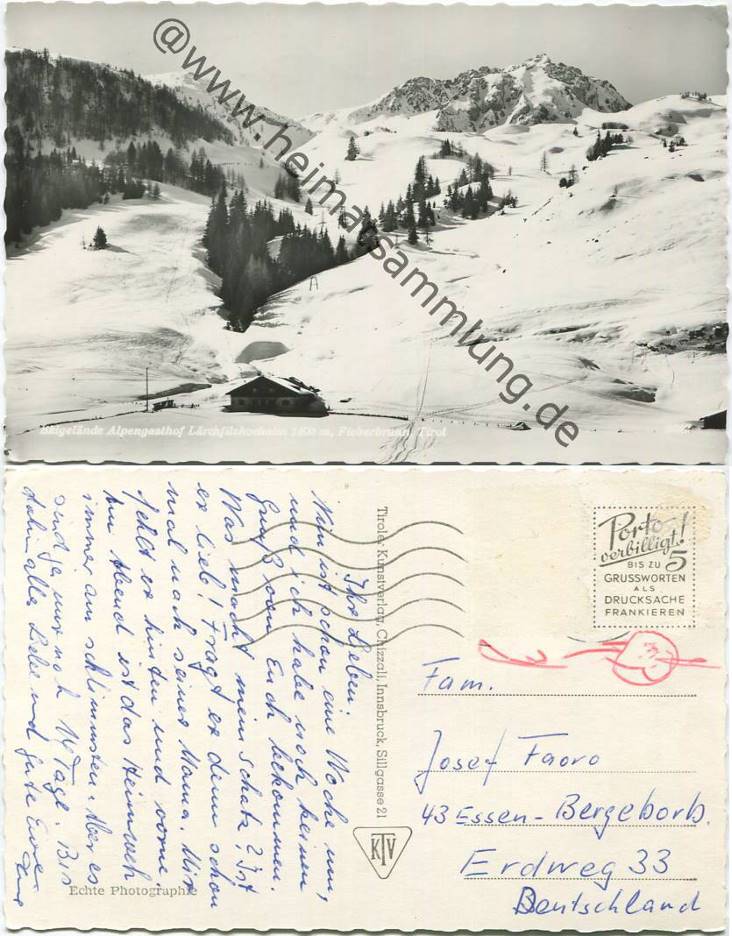 @www.heimatsammlung.de
Skigelände Alpengasthof Lärchfilzhochalm 1400 m, Fieberbrunn, Tirol
Porto
verbilligt!
BIS ZU 5
GRUSSWORTEN
ALS
DRUCKSACHE
FRANKIEREN
Tiroler Kunstverlag Chizzali, Innsbruck, Sillgasse 21
KTV
Echte Photographie
Fam.
Josef Faoro
43 Essen-Bergeborb.
Erdweg 33
Deutschland
Ihr Lieben!
Nun ist schon eine Woche um,
und ich habe noch keinen
Gruß von Euch bekommen.
Was macht mein Schatz? Ist
er lieb! Fragt er denn schon
mal nach seiner Mama. Mir
fehlt er hinten und vorne.
Am Abend ist das Heimweh
immer am schlimmsten. Aber es
sind ja nur noch 14 Tage. Bis
dahin alles Liebe und Gute Eure